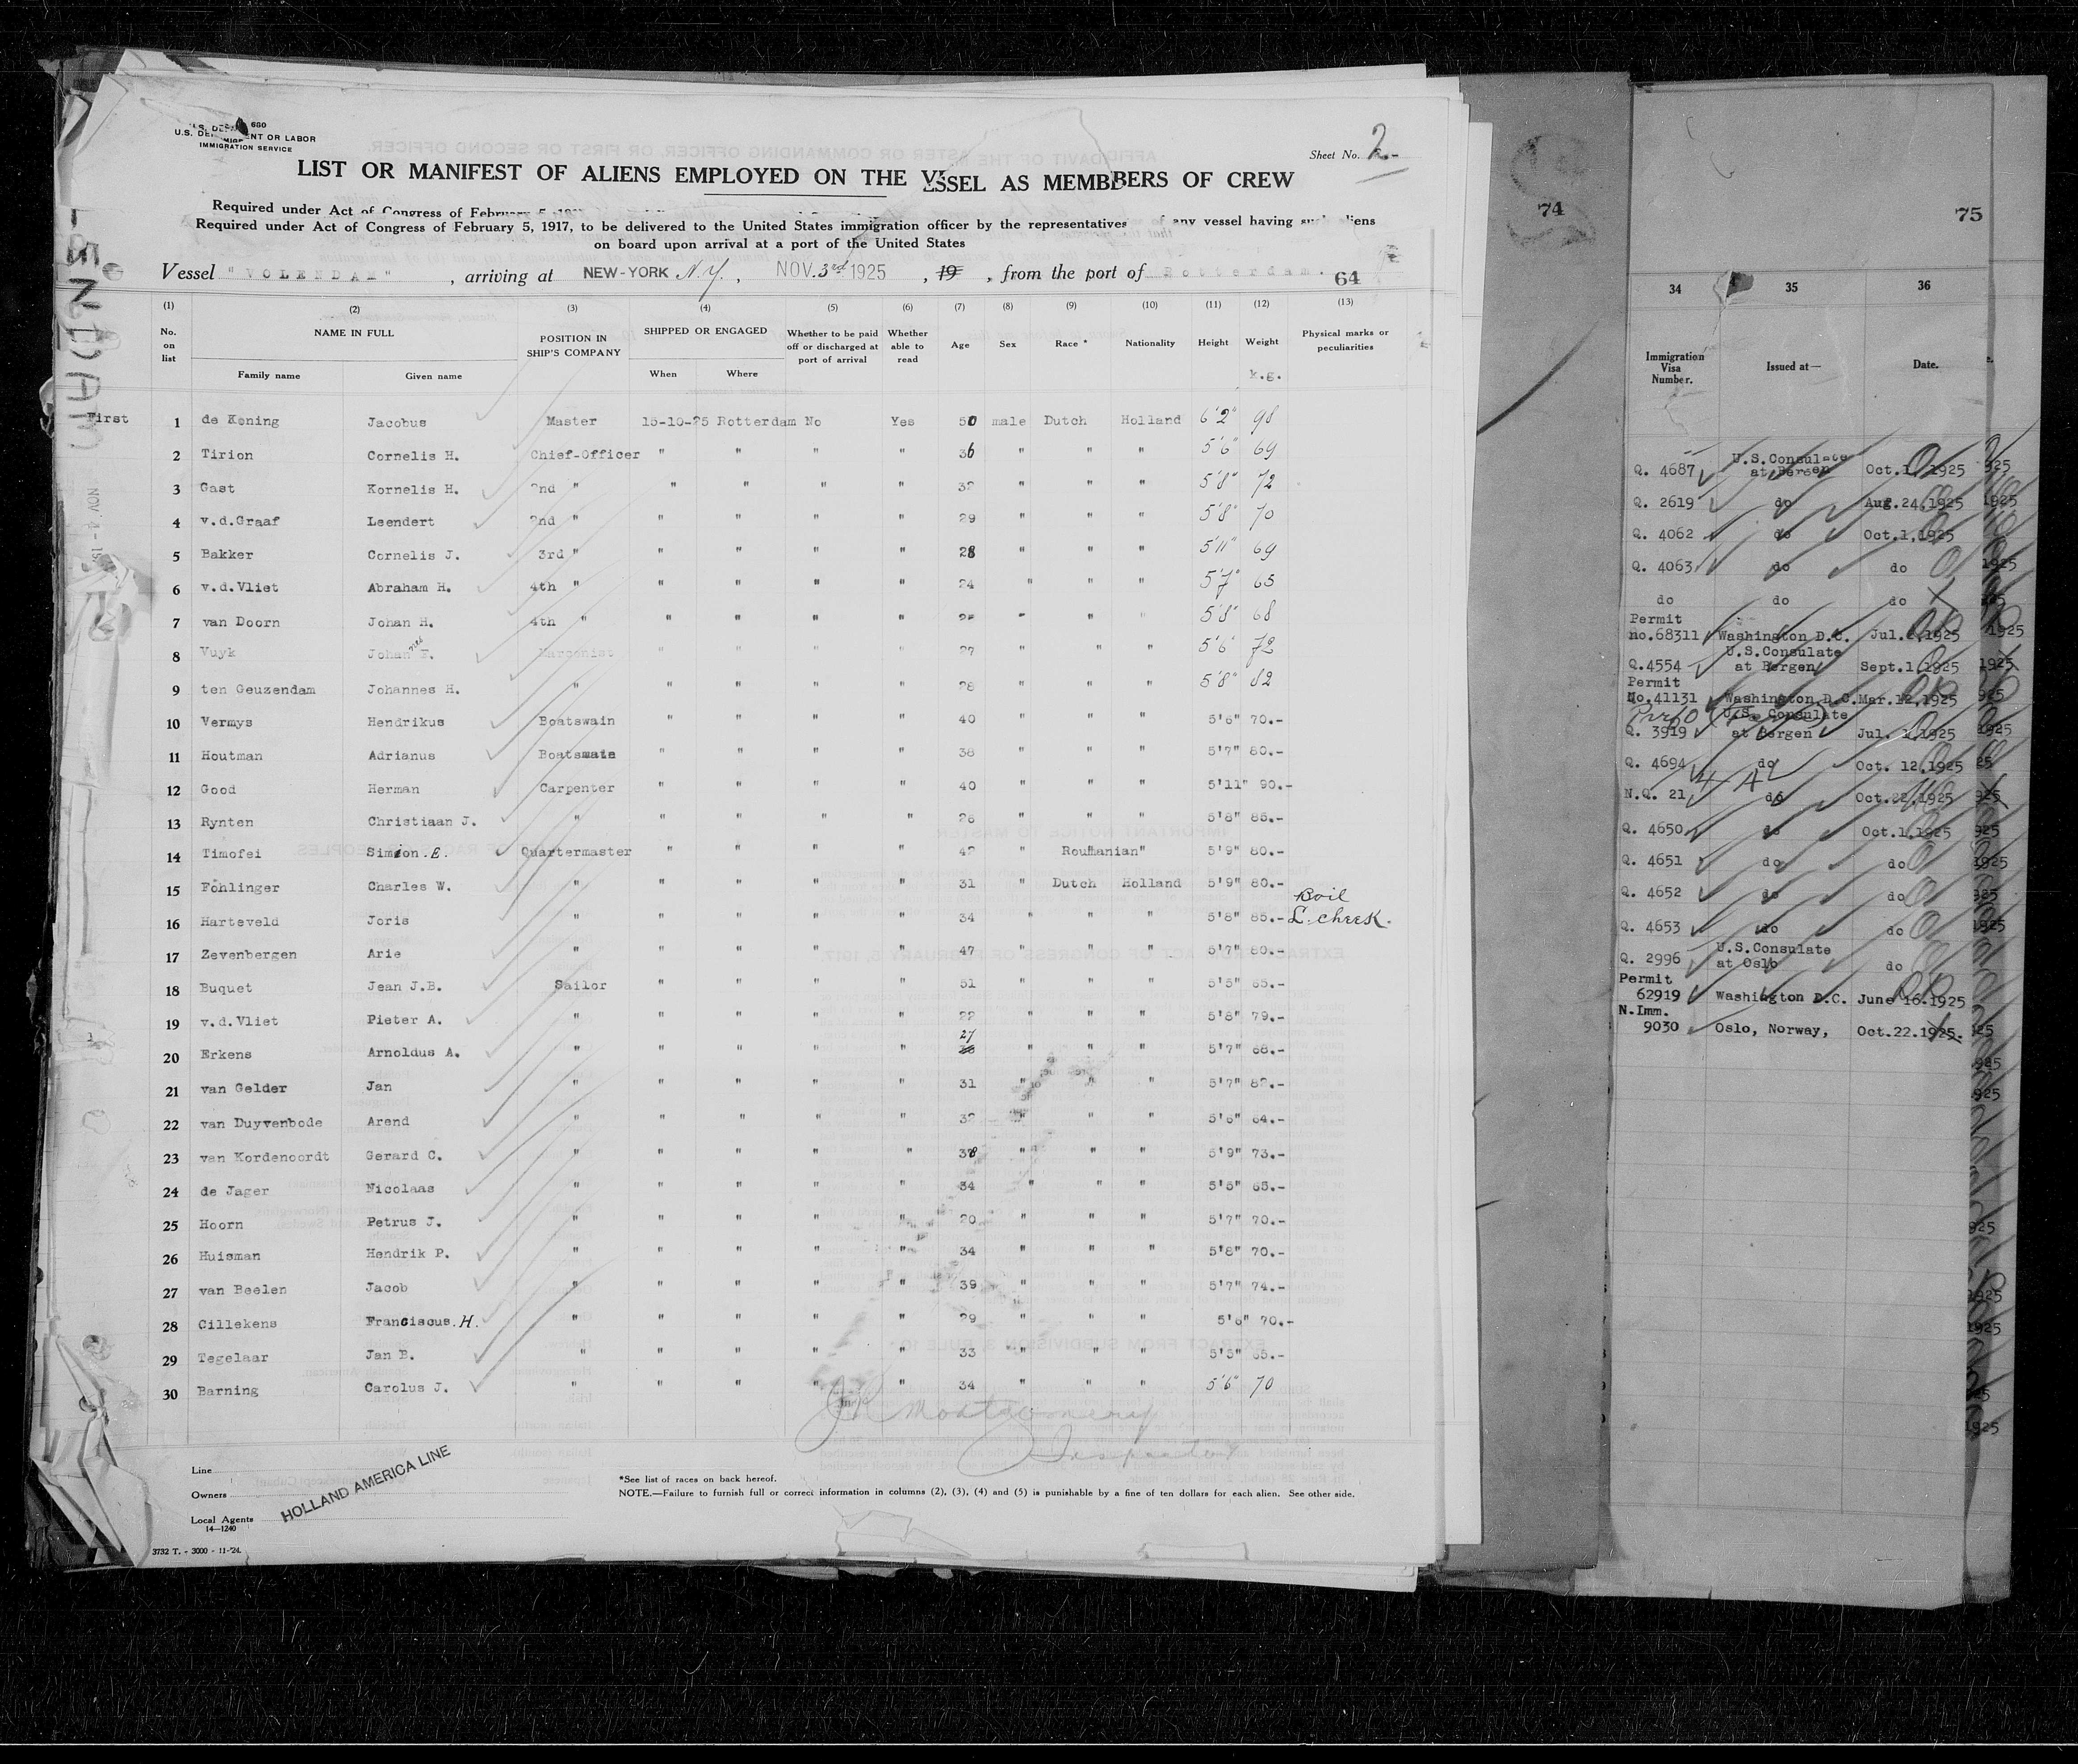 680
U.S. DEPARTMENT OR LABOR
IMMIGRATION SERVICE
Sheet No. 2.-
LIST OR MANIFEST OF ALIENS EMPLOYED ON THE VESSEL AS MEMBERS OF CREW
Required under Act of Congress of February 5, 191
Required under Act of Congress of February 5, 1917, to be delivered to the United States immigration officer by the representatives of any vessel having such aliens
on board upon arrival at a port of the United States
Vessel "VOLENDAM", arriving at NEW-YORK N.Y., NOV. 3rd 1925, 19 , from the port of Rotterdam. 64
(1) (2) (3) (4) (5) (6) (7) (8) (9) (10) (11) (12) (13)
No. on list NAME IN FULL POSITION IN SHIP'S COMPANY SHIPPED OR ENGAGED Whether to be paid off or discharged at port of arrival Whether able to read Age Sex Race * Nationality Height Weight Physical marks or peculiarities
Family name Given name When Where k.g.
First 1 de Koning Jacobus Master 15-10-25 Rotterdam No Yes 50 male Dutch Holland 6'2" 98
2 Tirion Cornelis H. Chief-Officer " " " " 36 " " " 5'6" 69
3 Gast Kornelis H. 2nd " " " " " 32 " " " 5'8" 72
4 v.d.Graaf Leendert 2nd " " " " " 29 " " " 5'8" 70
5 Bakker Cornelis J. 3rd " " " " " 28 " " " 5'11" 69
6 v.d.Vliet Abraham H. 4th " " " " " 24 " " " 5'7" 65
7 van Doorn Johan H. 4th " " " " " " " " 5'8" 68
8 Vuyk Johan E. Marconist " " " " 27 " " " 5'6" 72
9 ten Geuzendam Johannes H. " " " " " 28 " " " 5'8" 82
10 Vermys Hendrikus Boatswain " " " " 40 " " " 5'6" 70.-
11 Houtman Adrianus Boatsmate " " " " 38 " " " 5'7" 80.-
12 Good Herman Carpenter " " " " 40 " " " 5'11" 90.-
13 Rynten Christiaan J. " " " " " 28 " " " 5'8" 85.-
14 Timofei Simion.E. Quartermaster " " " " 42 " Roumanian" 5'9" 80.-
15 Föhlinger Charles W. " " " " " 31 " Dutch Holland 5'9" 80.-
16 Harteveld Joris " " " " " 34 " " " 5'8" 85.- Boil L. cheek.
17 Zevenbergen Arie " " " " " 47 " " " 5'7" 80.-
18 Buquet Jean J.B. Sailor " " " " 51 " " " 5'5" 65.-
19 v.d.Vliet Pieter A. " " " " " 22 " " " 5'8" 79.-
20 Erkens Arnoldus A. " " " " " 27 " " " 5'7" 68.-
21 van Gelder Jan " " " " " 31 " " " 5'7" 82.-
22 van Duyvenbode Arend " " " " " 32 " " " 5'6" 64.-
23 van Kordenoordt Gerard C. " " " " " 38 " " " 5'9" 73.-
24 de Jager Nicolaas " " " " " 34 " " " 5'5" 65.-
25 Hoorn Petrus J. " " " " " 20 " " " 5'7" 70.-
26 Huisman Hendrik P. " " " " " 34 " " " 5'8" 70.-
27 van Beelen Jacob " " " " " 39 " " " 5'7" 74.-
28 Cillekens Franciscus.H. " " " " " 29 " " " 5'6" 70.-
29 Tegelaar Jan B. " " " " " 33 " " " 5'5" 65.-
30 Barning Carolus J. " " " " " 34 " " " 5'6" 70
Montgomery
Inspector
Line
Owners
Local Agents
HOLLAND AMERICA LINE
14—1240
*See list of races on back hereof.
NOTE.—Failure to furnish full or correct information in columns (2), (3), (4) and (5) is punishable by a fine of ten dollars for each alien. See other side.
3732 T. - 3000 - 11-'24.
74
75
34 35 36
Immigration Visa Number. Issued at— Date.
Q. 4687 U.S.Consulate at Bergen Oct.1,1925
Q. 2619 do Aug.24,1925
Q. 4062 do Oct.1,1925
Q. 4063 do do
do do do
Permit no.68311 Washington D.C. Jul. 1925
Q.4554 U.S.Consulate at Bergen Sept.1,1925
Permit No.41131 Washington D.C. Mar.12,1925
Q. 3919 U.S. Consulate at Bergen Jul. 1,1925
Q. 4694 do Oct. 12,1925
N.Q. 21 do Oct.22,1925
Q. 4650 do Oct.1,1925
Q. 4651 do do
Q. 4652 do do
Q. 4653 do do
Q. 2996 U.S.Consulate at Oslo do
Permit 62919 Washington D.C. June 16.1925
N.Imm. 9030 Oslo, Norway, Oct.22.1925.